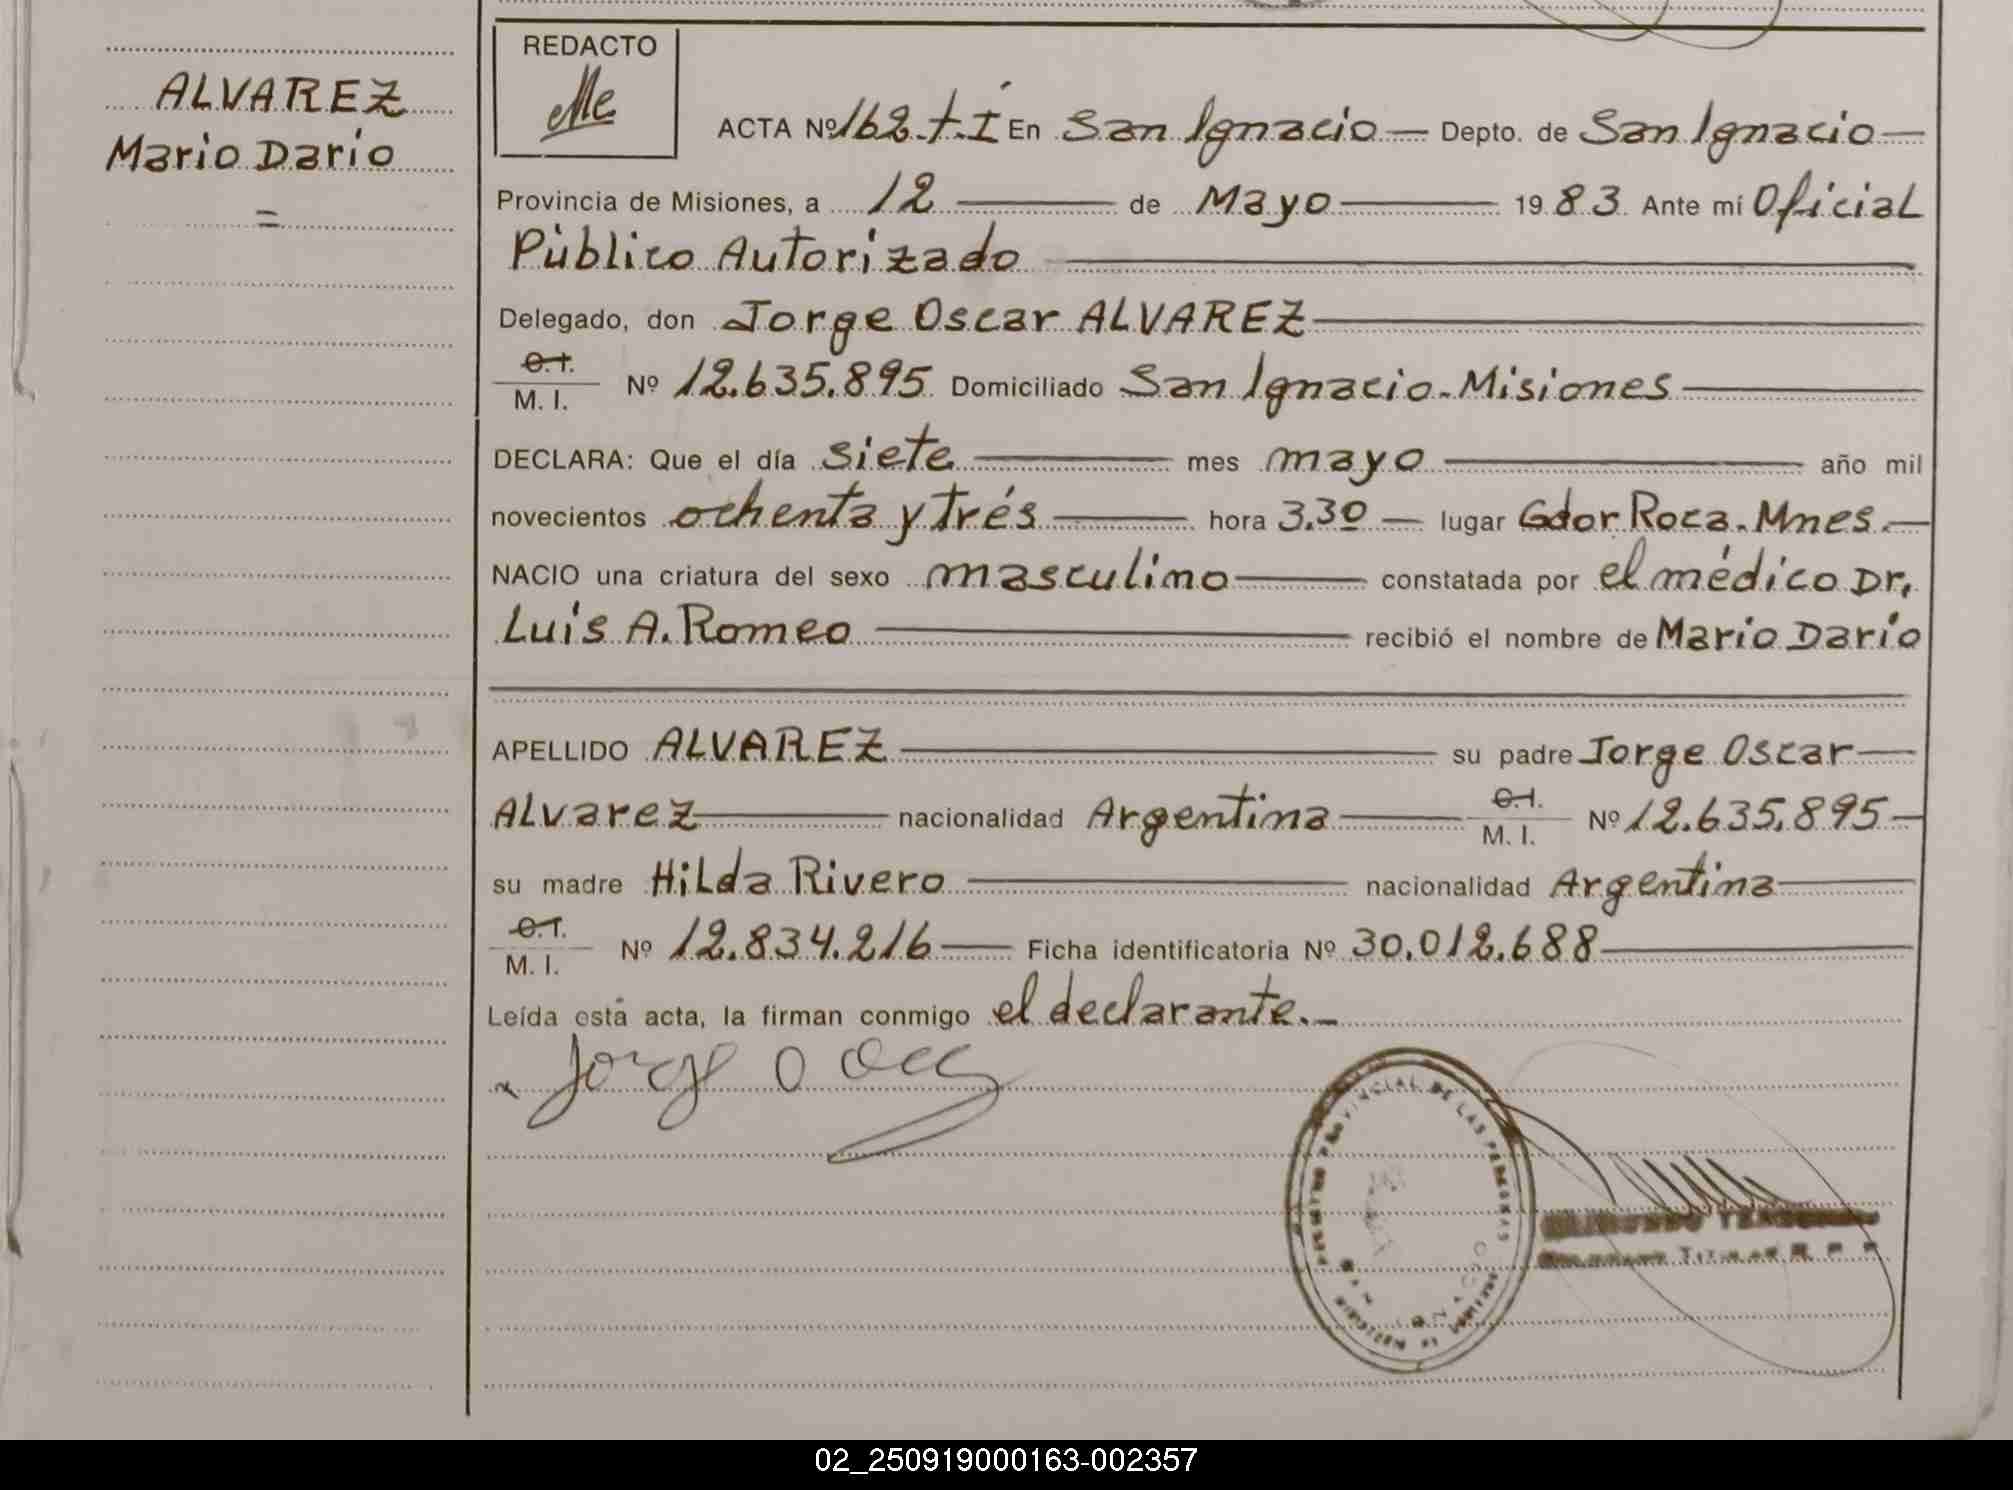 ALVAREZ
Mario Darío
=
REDACTO
ACTA Nº 162.-t.-I En San Ignacio — Depto. de San Ignacio —
Provincia de Misiones, a 12 — de Mayo — 1983 Ante mí Oficial
Público Autorizado —
Delegado, don Jorge Oscar ALVAREZ —
C.I.
M. I. Nº 12.635.895 Domiciliado San Ignacio-Misiones —
DECLARA: Que el día siete — mes mayo — año mil
novecientos ochenta y trés — hora 3.30 — lugar Gdor Roca. Mnes. —
NACIO una criatura del sexo masculino — constatada por el médico Dr.
Luis A. Romeo — recibió el nombre de Mario Darío
APELLIDO ALVAREZ — su padre Jorge Oscar —
Alvarez — nacionalidad Argentina — C.I.
M. I. Nº 12.635.895 —
su madre Hilda Rivero — nacionalidad Argentina —
C.I.
M. I. Nº 12.834.216 — Ficha identificatoria Nº 30.012.688 —
Leída está acta, la firman conmigo el declarante.—
Jorge O
PROVINCIAL DE LAS PERSONAS
02_250919000163-002357